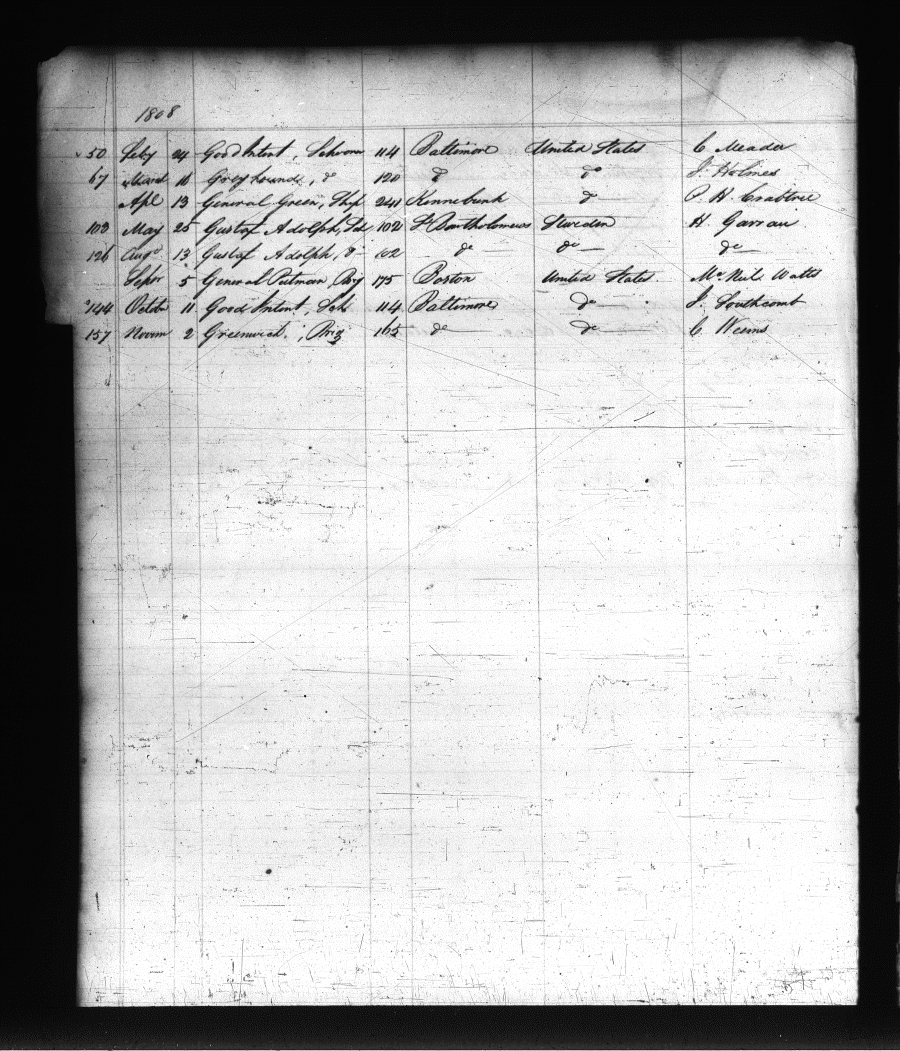 1808
50 Feby 24 Good Intent, Schoon 114 Baltimore United States C Meader
67 March 11 Greyhound, do 120 do do J. Holmes
Apl 13 General Green, Ship 241 Kennebunk do P. H. Crabtree
103 May 25 Gustaf Adolph, 102 St Bartholomews Sweden H
126 Augt 13 Gustaf Adolph, do 102 do do do
Sepr 5 General Putman, Brig 175 Boston United States Watts
144 Octobr 11 Good Intent, Sch 114 Baltimore do J. Southcomb
157 Novem 2 Greenwich, Brig 165 do do C Weems